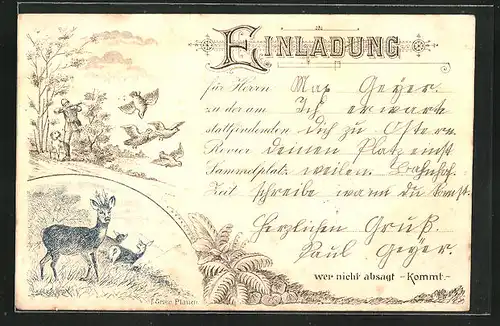 EINLADUNG
für Herrn Max Geyer.
zu der am Ich erwarte
stattfindenden dich zu Ostern.
Revier deinen Platz einst
Sammelplatz weilen. Bahnhof.
Zeit schreibe wann du komst.
Herzlichen Gruß.
Paul Geyer.
wer nicht absagt - Kommt.-
Plauen